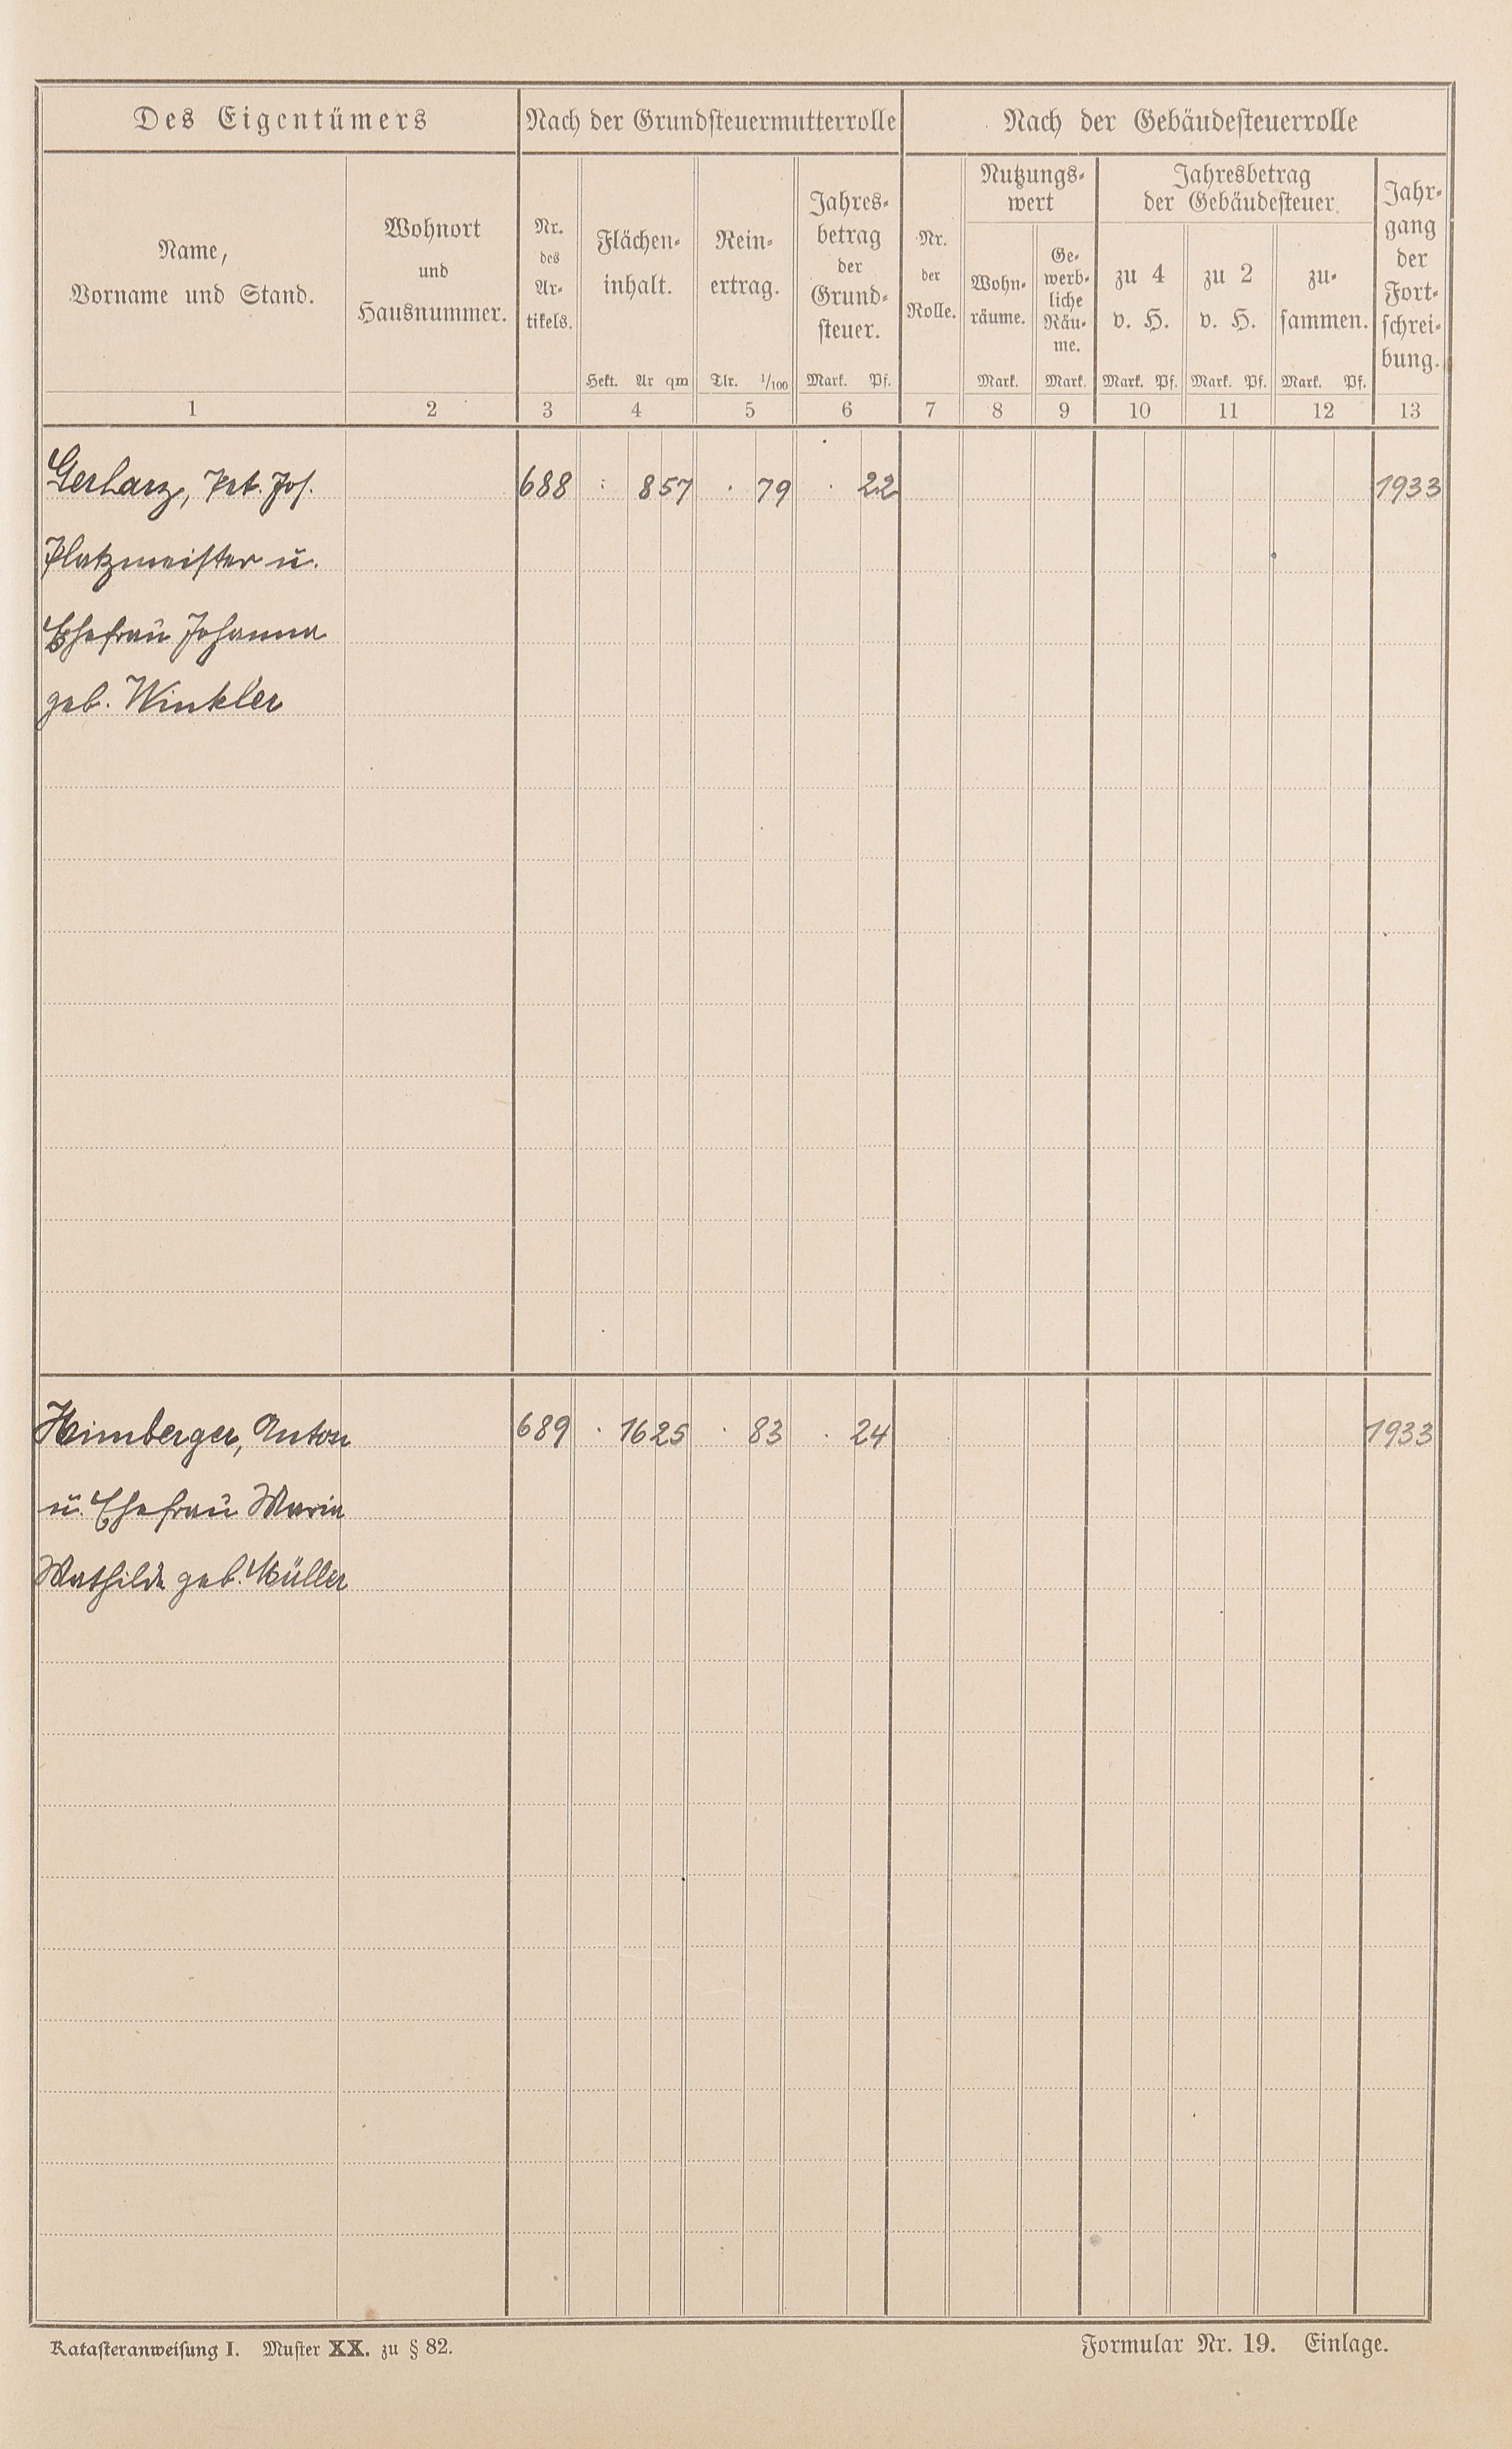 Des Eigentümers
Nach der Grundsteuermutterrolle
Nach der Gebäudesteuerrolle
Name,
Vorname und Stand.
Wohnort
und
Hausnummer.
Nr.
des
Ar-
tikels.
Flächen-
inhalt.
Hekt. Ar qm
Rein-
ertrag.
Tlr. 1/100
Jahres-
betrag
der
Grund-
steuer.
Mark. Pf.
Nr.
der
Rolle.
Nutzungs-
wert
Wohn-
räume.
Mark.
Ge-
werb-
liche
Räu-
me.
Mark.
Jahresbetrag
der Gebäudesteuer.
zu 4
v. H.
Mark. Pf.
zu 2
v. H.
Mark. Pf.
zu-
sammen.
Mark. Pf.
Jahr-
gang
der
Fort-
schrei-
bung.
1 2 3 4 5 6 7 8 9 10 11 12 13
Gerharz, Pet. Jos. 688 . 8 57 . 79 . 22 1933
Platzmeister u.
Ehefrau Johanna
geb. Winkler
Himberger, Anton 689 . 16 25 . 83 . 24 1933
u. Ehefrau Maria
Mathilde geb. Müller
Katasteranweisung I. Muster XX. zu § 82.
Formular Nr. 19. Einlage.